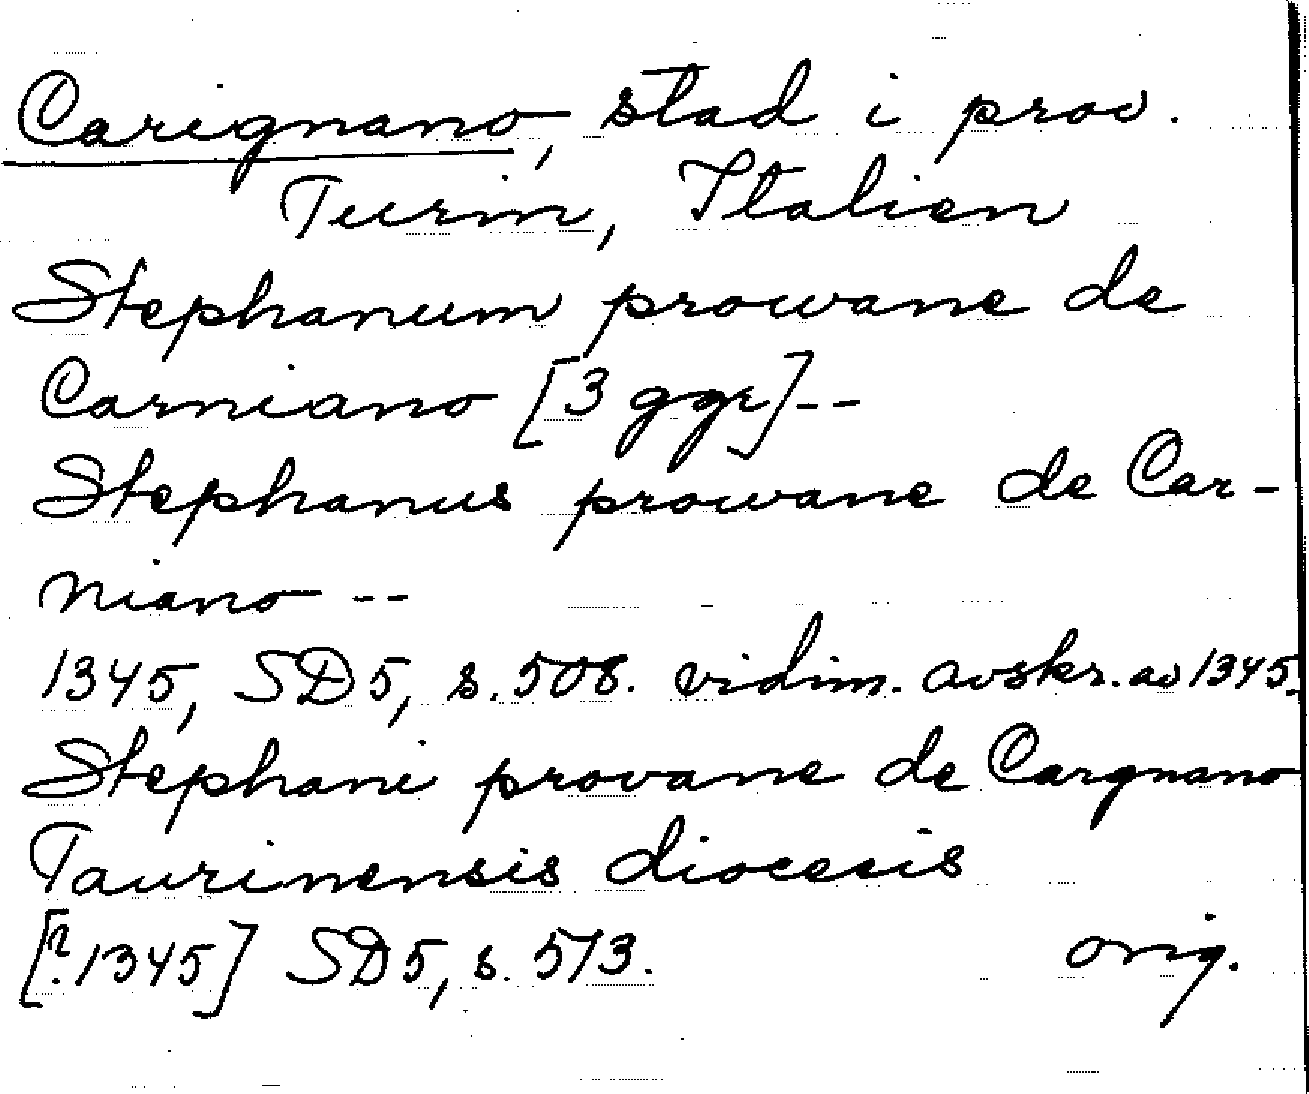 Carignano, stad i prov.
Turin, Italien
Stephanum prowane de
Carniano [3 ggr]--
Stephanus prowane de Car-
niano --
1345, SD5, s. 508. vidim. avskr. av 1345.
Stephani provane de Cargnano
Taurinensis diocesis
[?1345] SD5, s. 573. orig.